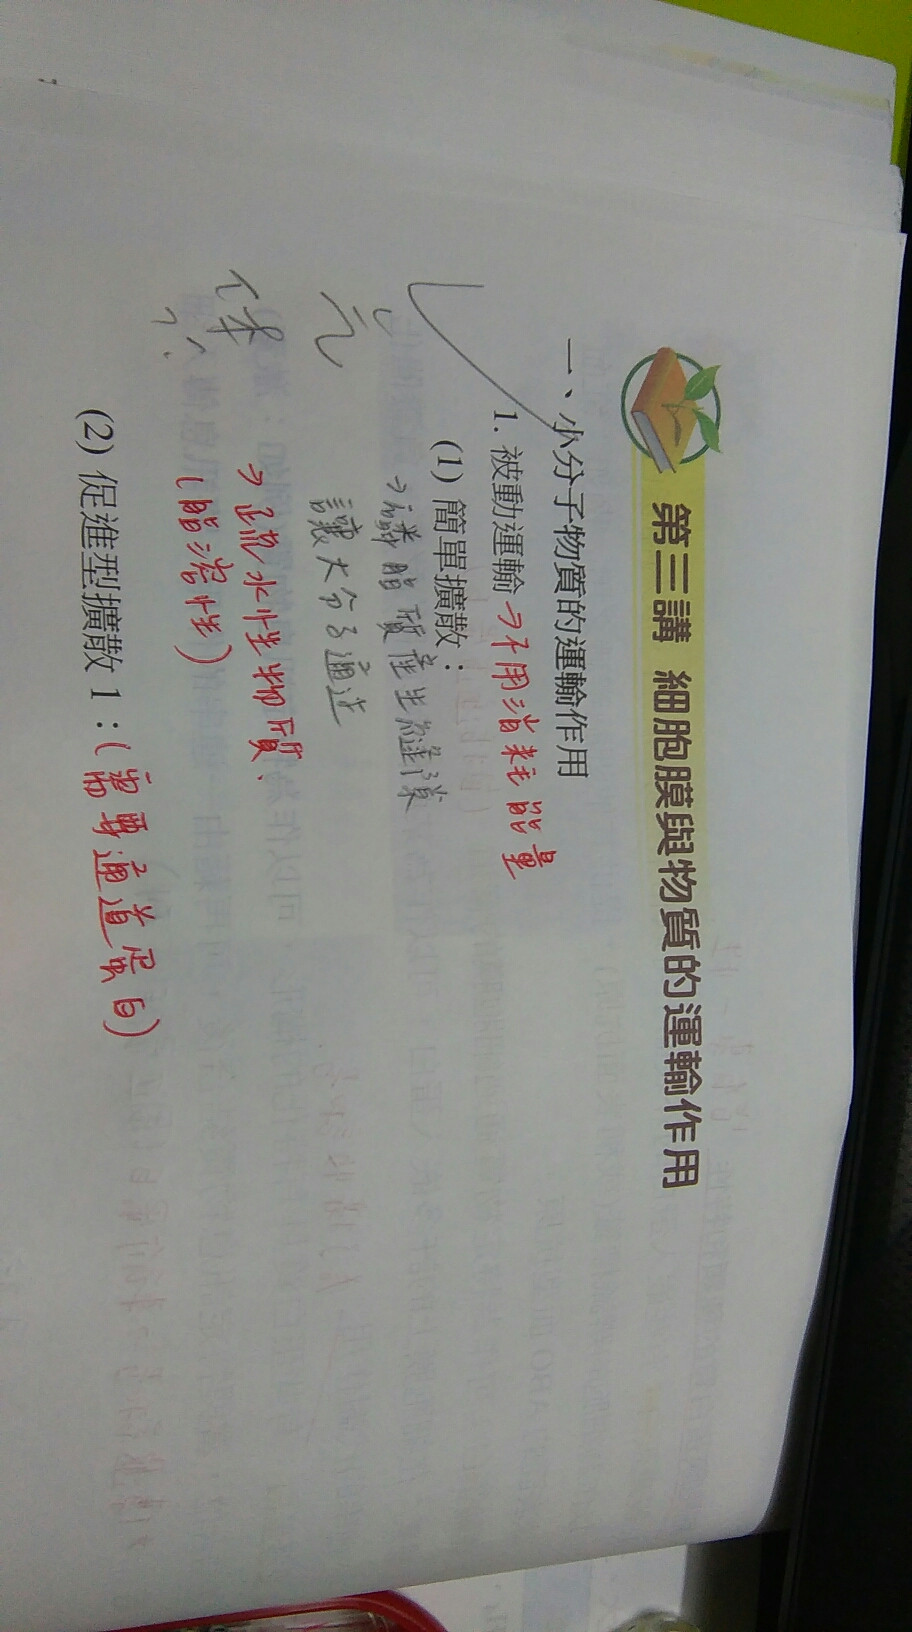 第三講 細胞膜與物質的運輸作用
一、小分子物質的運輸作用
1. 被動運輸→不用消耗能量
(1) 簡單擴散：
→磷脂質產生縫隙
讓大分子通過
→疏水性物質、
(脂溶性)
(2) 促進型擴散 1：(需要通道蛋白)
完